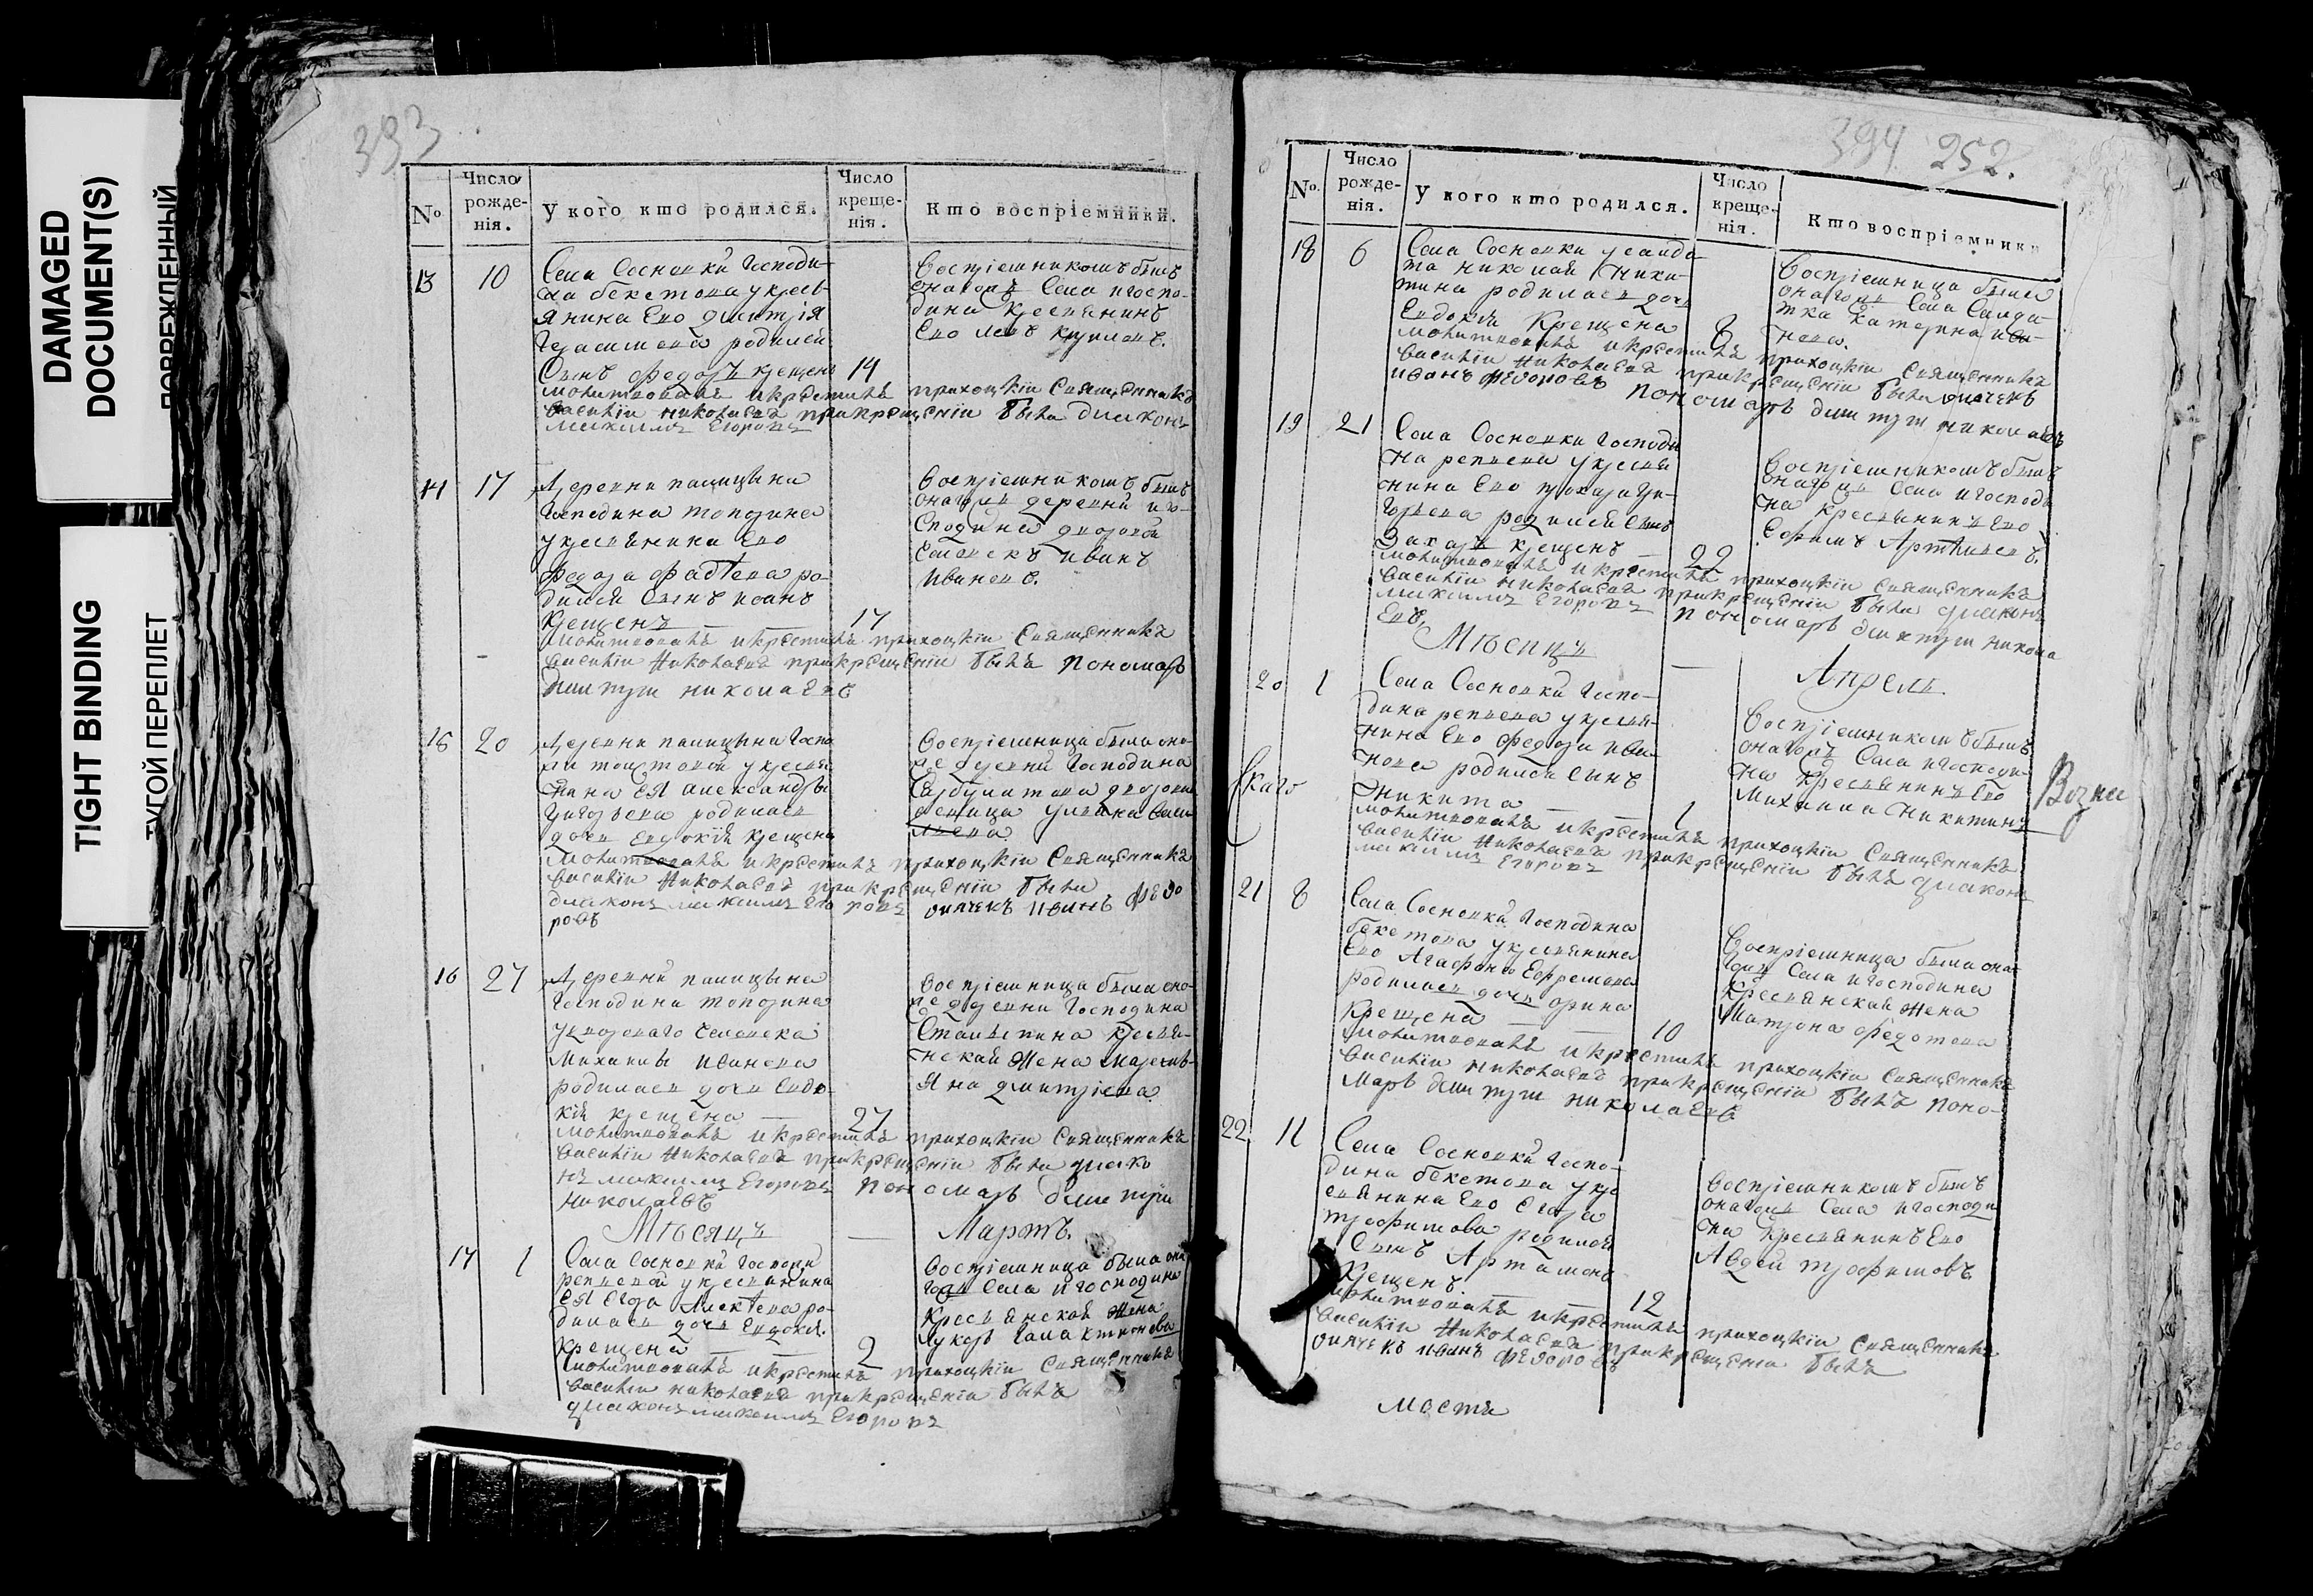 DAMAGED
DOCUMENT(S)
ПОВРЕЖДЕННЫЙ
TIGHT BINDING
ТУГОЙ ПЕРЕПЛЕТ
393
№
Число рожде-нія.
У кого кто родился.
Число креще-нія.
Кто воспріемники.
13
10
Села Сосновки Господи-
на бекетова у кресть-
янина Его Дмитрія
Герасимова родился
Сынъ Федоръ крещенъ 14
Воспріемникомъ былъ
онагожъ Села и госпо-
дина Крестьянинъ
Его
молитвовалъ и крестилъ приходскій Священникъ
Василій Николаевъ при крещеніи были диаконъ
максимъ Егоровъ
14
17
Деревни палицына
Господина топорина
у крестьянина Его
Федора Фадѣева ро-
дился Сынъ иванъ
Крещенъ 17
Воспріемникомъ былъ
онагожъ деревни и го-
сподина дворовой
человекъ иванъ
Ивановъ.
молитвовалъ и крестилъ приходскій Священникъ
Василій Николаевъ при крещеніи былъ пономарь
Дмитрій николаевъ
15
20
Деревни палицына Госпо
жи толстовой у крестья
нина ея александры
Григорьева родилась
дочь Евдокія крещена
Воспріемница была оно-
же деревни Господина
дворовая
девица ульяна Васи
льева
молитвовалъ и крестилъ приходскій Священникъ
Василій Николаевъ при крещеніи были
диаконъ максимъ Егоровъ дьячекъ иванъ Федо
ровъ
16
27
Деревни палицына
Господина топорина
у двороваго человека
Михаилы Иванова
родилась дочь Евдо-
кія крещена 27
Воспріемница была оно-
же деревни Господина
Столыпина крестья-
нская жена маремь-
яна дмитріева
молитвовалъ и крестилъ приходскій Священникъ
Василій Николаевъ при крещеніи были диако
нъ максимъ Егоровъ пономарь дмитрій
николаевъ
Мѣсяцъ Мартъ.
17
1
Села Сосновки Госпожи
репьевой у крестьянина
ея Егора Алексѣева ро-
дилась дочь Евдокія.
Крещена 2
Воспріемница была она
гожъ Села и господина
Крестьянская жена
молитвовалъ и крестилъ приходскій Священникъ
Василій николаевъ при крещеніи былъ
диаконъ максимъ Егоровъ
394 252.
№
Число рожде-нія.
У кого кто родился.
Число креще-нія.
Кто воспріемники
18
6
Села Сосновки у салда
та николая Ники-
тина родилась дочь
Евдокія Крещена 8
Воспріемница была
онагожъ Села Салда-
тка катерина ива-
нова.
молитвовалъ и крестилъ приходскій Священникъ
Василій Николаевъ при крещеніи были дьячекъ
иванъ Федоровъ пономарь дмитрій николаевъ
19
21
Села Сосновки Господи
на репьева у крестья
нина Его прохора Гри-
горьева родился Сынъ
Захаръ крещенъ 22
Воспріемникомъ былъ
онагожъ Села и господи
на крестьянинъ Его
Ефимъ Артѣмьевъ.
молитвовалъ и крестилъ приходскій Священникъ
Василій Николаевъ при крещеніи были диаконъ
максимъ Егоровъ пономарь дмитрій никола
евъ.
Мѣсяцъ Апрель.
20
1
Села Сосновки Госпо-
дина репьева у крестья-
нина Его Федора Ива-
нова родился Сынъ
Никита 1
Воспріемникомъ былъ
онагожъ Села и господи-
на Крестьянинъ Его
Михаила Никитинъ
молитвовалъ и крестилъ приходскій Священникъ
Василій Николаевъ при крещеніи былъ диаконъ
максимъ Егоровъ
21
8
Села Сосновки Господина
бекетова у крестьянина
Его Агафона Ефремова
родилась дочь орина
Крещена 10
Воспріемница была она-
гожъ Села и господина
Крестьянская жена
Матрона федотова
молитвовалъ и крестилъ приходскій Священникъ
Василій Николаевъ при крещеніи былъ поно-
марь дмитрій николаевъ
22
11
Села Сосновки Госпо-
дина бекетова у кре
стьянина Его Егора
трофимова родился
Сынъ Артамонъ
Крещенъ 12
Воспріемникомъ былъ
онагожъ Села и господи
на Крестьянинъ Его
Авдей трофимовъ.
молитвовалъ и крестилъ приходскій Священникъ
Василій Николаевъ при крещеніи былъ
дьячекъ иванъ Федоровъ